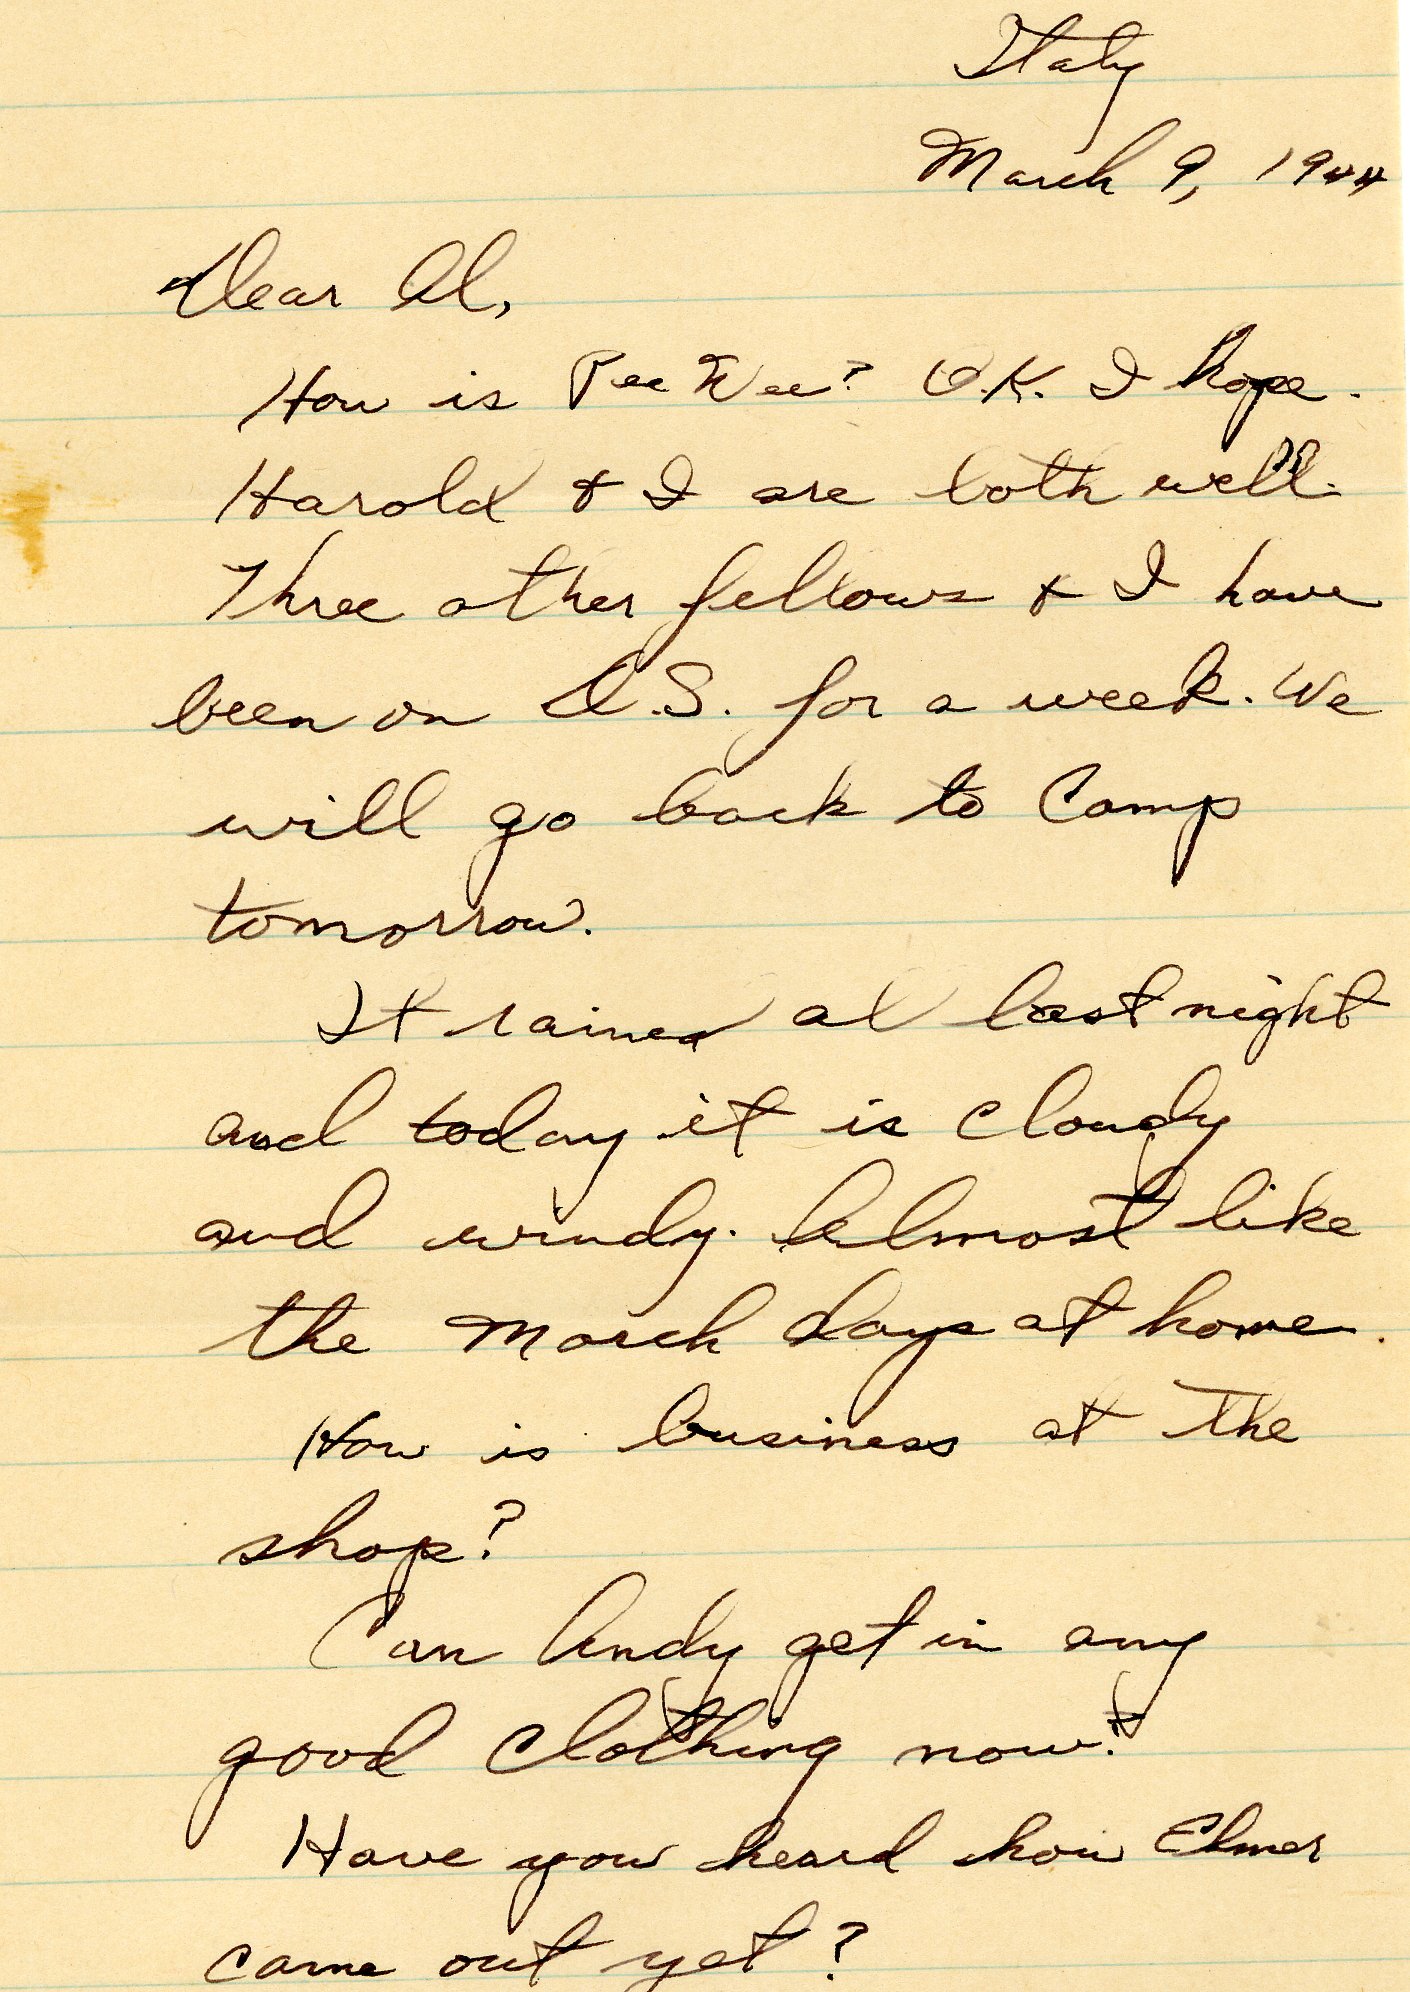 Italy
March 9, 1944
Dear Al,
How is Pee Wee? O.K. I hope.
Harold & I are both well.
Three other fellows & I have
been on D.S. for a week. We
will go back to Camp
tomorrow.
It rained al last night
and today it is cloudy
and windy. Almost like
the March days at home.
How is business at the
shop?
Can Andy get in any
good clothing now?
Have you heard how Elmer
came out yet?